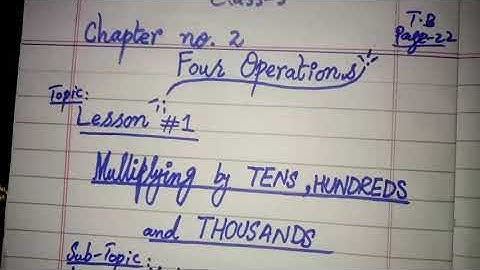 Class-5
T.B
Page-22
Chapter no. 2
Four Operations
Topic:
Lesson #1
Multiplying by TENS, HUNDREDS
and THOUSANDS
Sub-Topic: